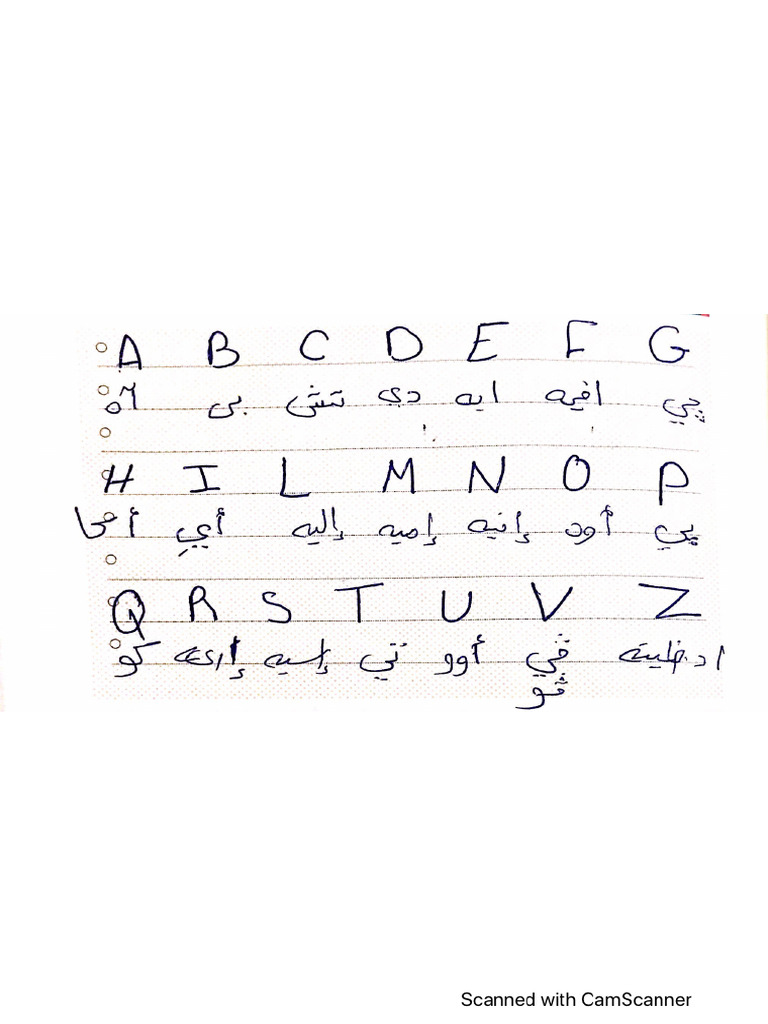 A B C D E F G
آه بى تش دي ايه افيه چي
H I L M N O P
أي إليه إميه إنيه أود پي
Q R S T U V Z
كو إريه إسيه تي أوو ڤي
ڤو
Scanned with CamScanner